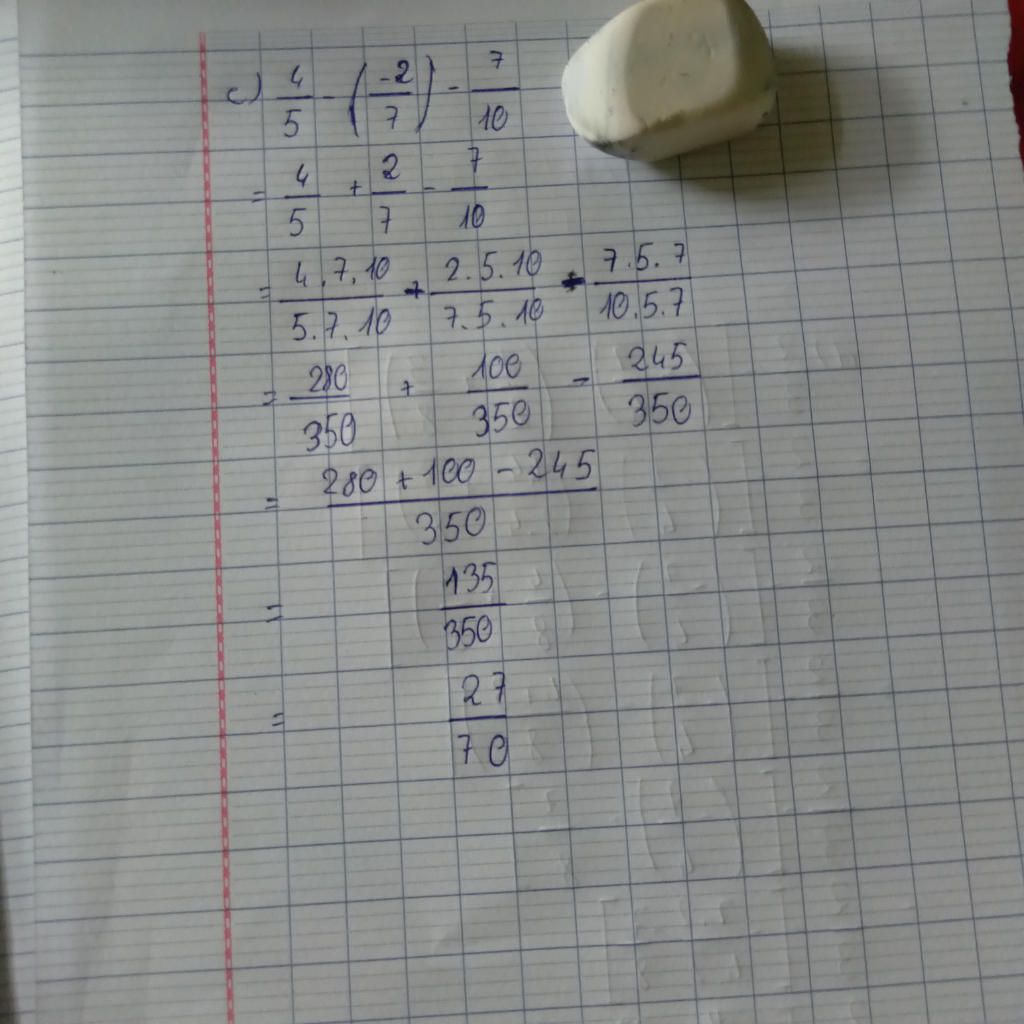 c) 4/5 - (-2/7) - 7/10
= 4/5 + 2/7 - 7/10
= 4.7.10/5.7.10 + 2.5.10/7.5.10 - 7.5.7/10.5.7
= 280/350 + 100/350 - 245/350
= 280 + 100 - 245/350
= 135/350
= 27/70